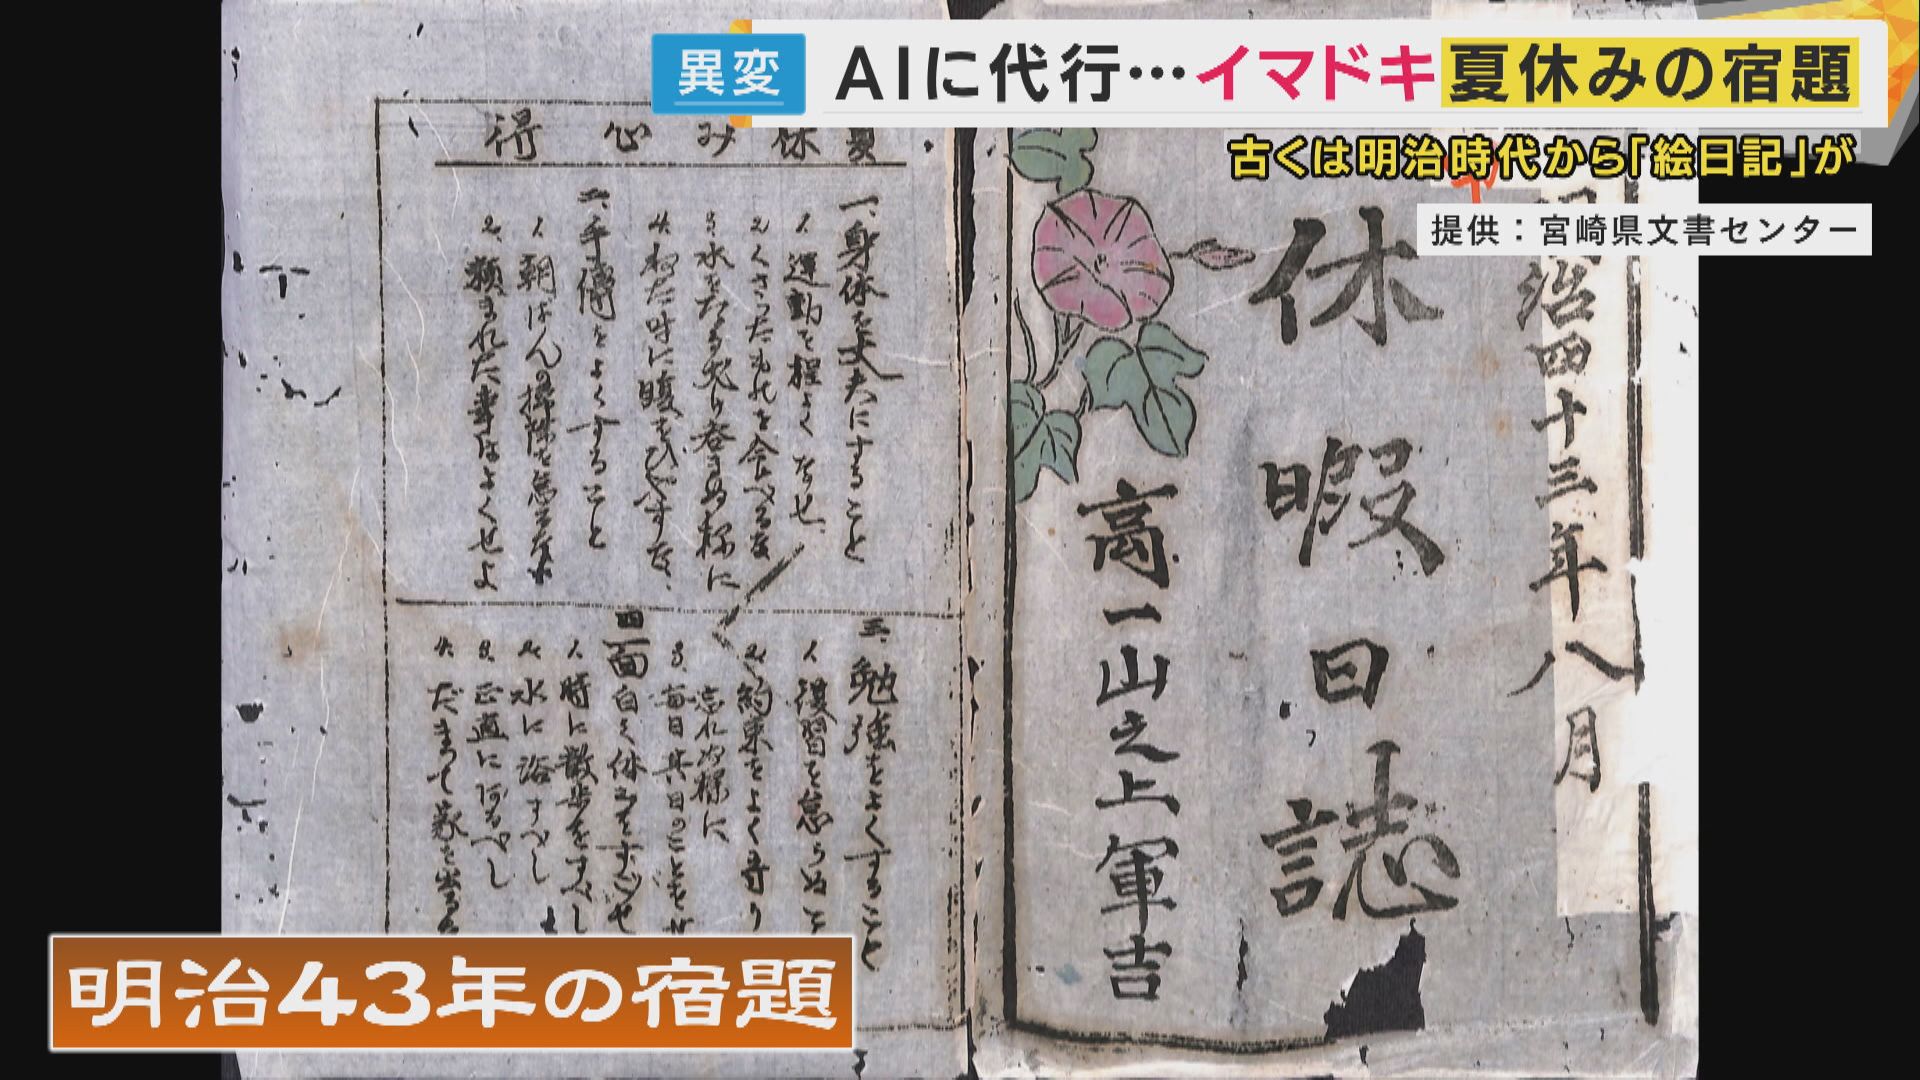 異変
AIに代行…イマドキ夏休みの宿題
古くは明治時代から「絵日記」が
提供：宮崎県文書センター
治四十三年八月
休暇日誌
高一山之上軍吉
夏休み心得
一、身体を丈夫にすること
1. 運動を程よくなせ、
2. くさったものを食べるな
3. 水をたる丈け呑まぬ様に
4. ねた時に腹をひやすな、
二、手傳をよくすること
1. 朝ばんの掃除を怠るな
2. 頼まれた事はよくせよ
三、勉強をよくすること
1. 復習を怠らぬこと
2. 約束をよく守り
忘れぬ様に
3. 毎日其日のことをせ
四、面白く休みをすごせ
1. 時に散歩をすべし
2. 水に浴すべし
3. 正直に
4. だまって家を出る
明治43年の宿題